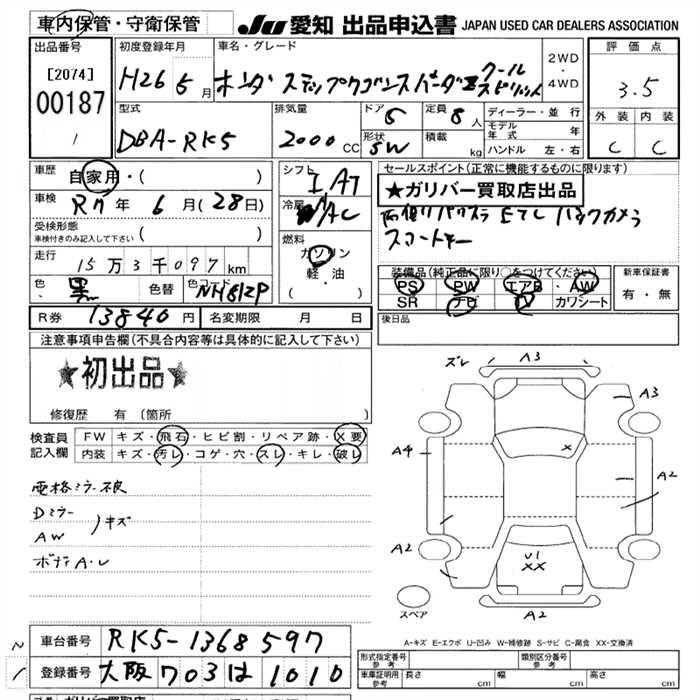 車内保管・守衛保管
JU 愛知 出品申込書 JAPAN USED CAR DEALERS ASSOCIATION
出品番号
[2074]
00187
/
初度登録年月
H26 5月
車名・グレード
ホンダ ステップワゴンスパーダZ クールスピリット
2WD・4WD
評価点
3.5
外装 内装
C C
型式
DBA-RK5
排気量
2000 CC
ドア 5
形状 SW
定員 8人
積載 kg
ディーラー・並行
モデル年式 年
ハンドル 左・右
車歴 自家用・( )
車検 R7年 6月(28日)
受検形態
車検付きのみ記入して下さい ( )
走行 15万3千097km
色 黒
色替
色コード NH812P
シフト IAT
冷房 AAC
燃料
ガソリン
軽・油
( )
セールスポイント(正常に機能するものに限ります)
★ガリバー買取店出品
両側パワスラ ETC バックカメラ
スマートキー
装備品(純正品に限り○をつけてください)
PS PW エアB AW
SR ナビ TV カワシート
新車保証書
有・無
R券 13840円
名変期限 月 日
後日品
注意事項申告欄(不具合内容等は具体的に記入して下さい)
★初出品★
修復歴 有 (箇所 )
検査員記入欄
FW キズ・飛石・ヒビ割・リペア跡・X要
内装 キズ・汚レ・コゲ・穴・スレ・キレ・破レ
電格ミラー不良
Dミラー
AW )キズ
ボディA・U
ズレ A3
A3
A4
A2
A2
U1
XX
A2
スペア
A-キズ E-エクボ U-凹み W-補修跡 S-サビ C-腐食 XX-交換済
車台番号 RK5-1368597
登録番号 大阪703は1010
形式指定番号 参考
類別区分番号 参考
車庫証明用 参考 長さ cm 幅 cm 高さ cm
ガリバー買取店